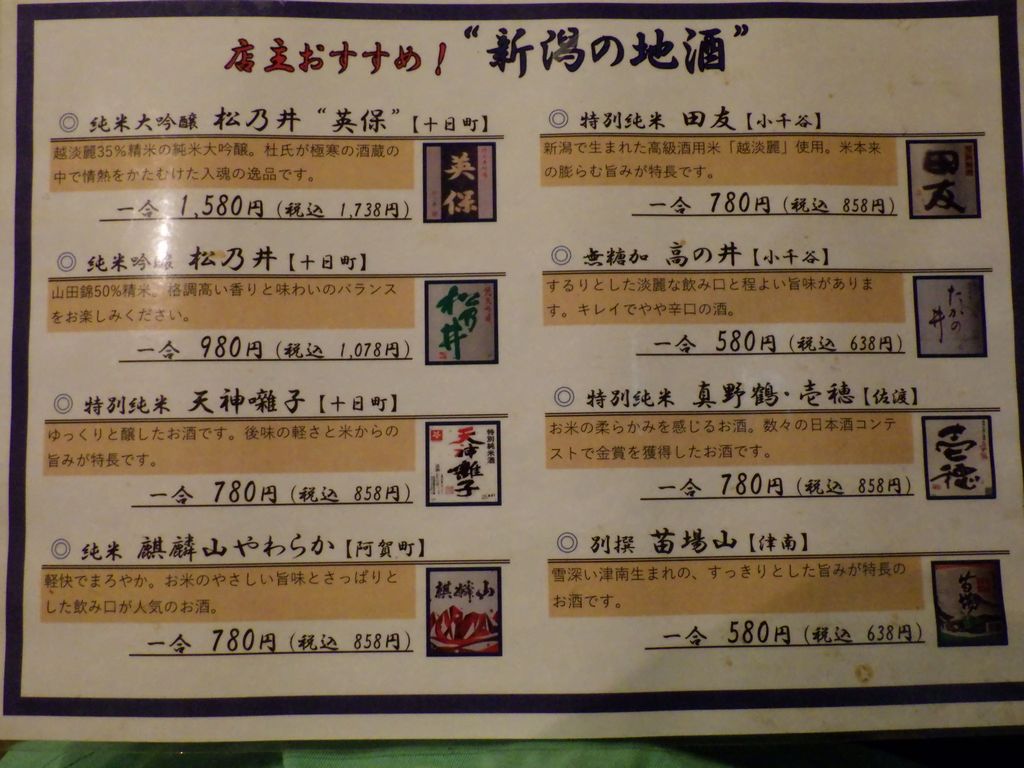 店主おすすめ！“新潟の地酒”
◎ 純米大吟醸 松乃井 “英保”【十日町】
越淡麗35%精米の純米大吟醸。杜氏が極寒の酒蔵の
中で情熱をかたむけた入魂の逸品です。
一合 1,580円（税込 1,738円）
英保
◎ 純米吟醸 松乃井【十日町】
山田錦50%精米。格調高い香りと味わいのバランス
をお楽しみください。
一合 980円（税込 1,078円）
松乃井
◎ 特別純米 天神囃子【十日町】
ゆっくりと醸したお酒です。後味の軽さと米からの
旨みが特長です。
一合 780円（税込 858円）
特別純米酒
天神囃子
◎ 純米 麒麟山やわらか【阿賀町】
軽快でまろやか。お米のやさしい旨味とさっぱりと
した飲み口が人気のお酒。
一合 780円（税込 858円）
麒麟山
◎ 特別純米 田友【小千谷】
新潟で生まれた高級酒用米「越淡麗」使用。米本来
の膨らむ旨みが特長です。
一合 780円（税込 858円）
田友
◎ 無糖加 高の井【小千谷】
するりとした淡麗な飲み口と程よい旨味がありま
す。キレイでやや辛口の酒。
一合 580円（税込 638円）
たかの井
◎ 特別純米 真野鶴・壱穂【佐渡】
お米の柔らかみを感じるお酒。数々の日本酒コンテ
ストで金賞を獲得したお酒です。
一合 780円（税込 858円）
壱穂
◎ 別撰 苗場山【津南】
雪深い津南生まれの、すっきりとした旨みが特長の
お酒です。
一合 580円（税込 638円）
苗場山